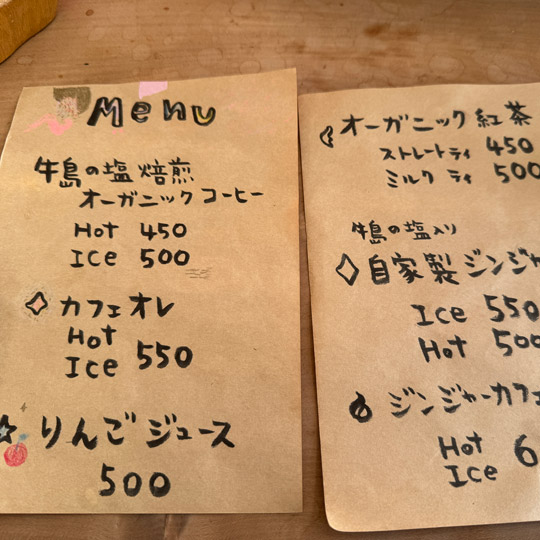 Menu
牛島の塩 焙煎
オーガニックコーヒー
Hot 450
Ice 500
カフェオレ
Hot
Ice 550
りんごジュース
500
オーガニック紅茶
ストレートティ 450
ミルクティ 500
牛島の塩入り
自家製ジンジャ
Ice 550
Hot 500
ジンジャーカフェ
Hot 6
Ice